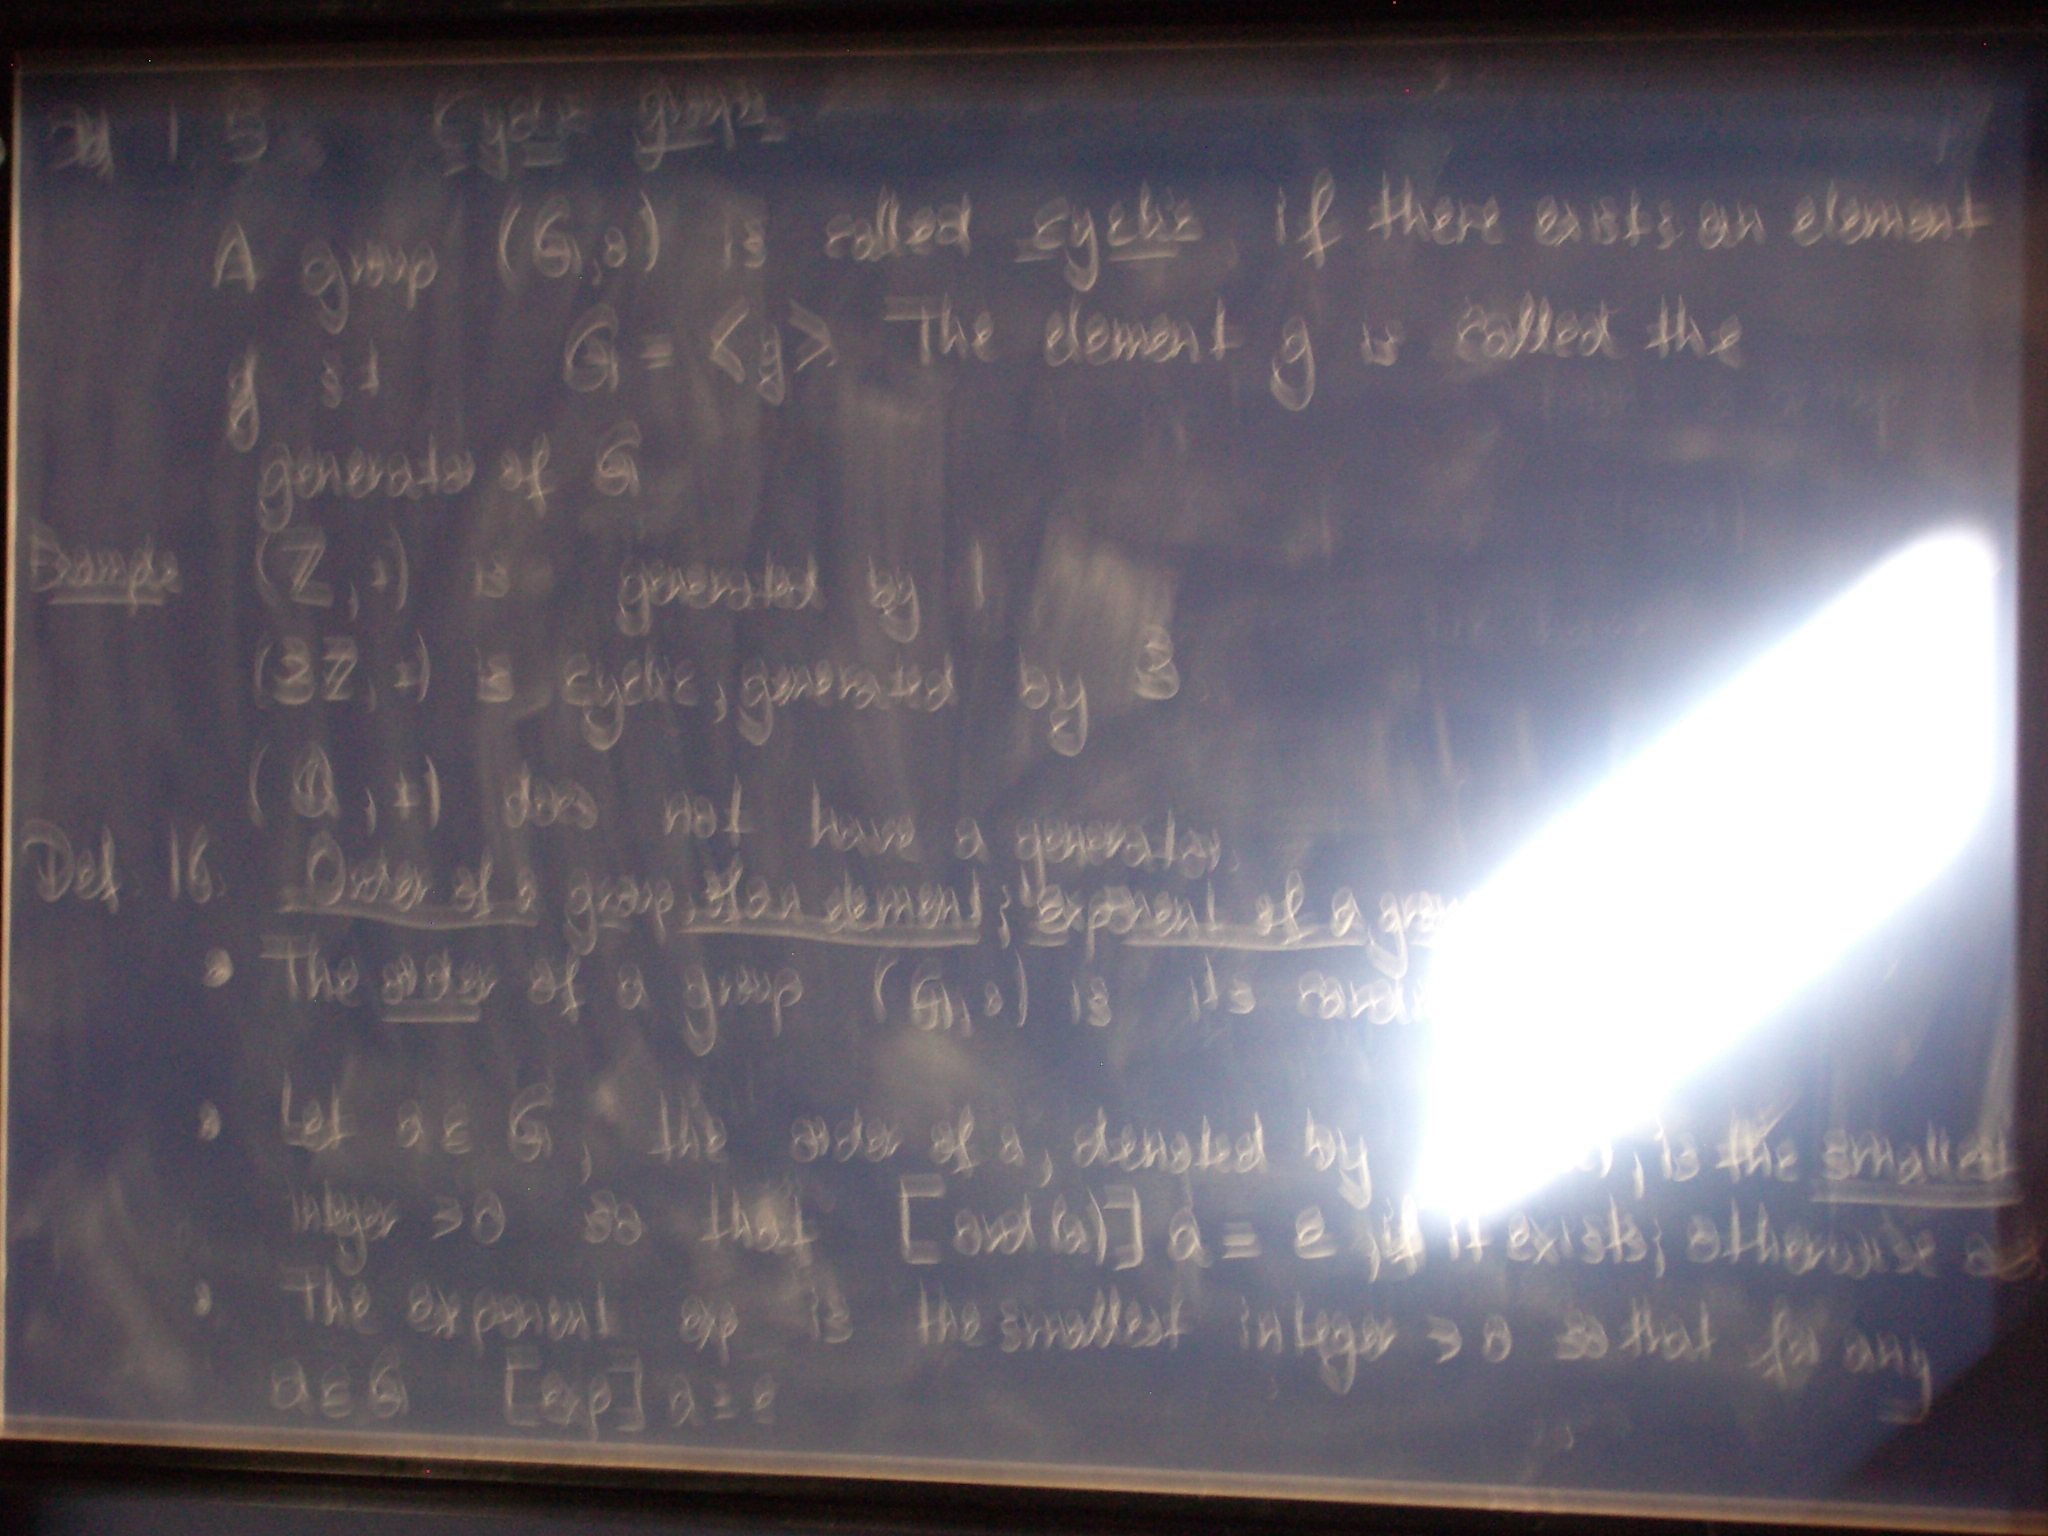 Def 15 Cyclic groups
A group (G,∘) is called cyclic if there exists an element
g st G = <g>. The element g is called the
generator of G
Example (ℤ,+) is generated by 1
(3ℤ,+) is cyclic, generated by 3
(ℚ,+) does not have a generator.
Def. 16. Order of a group, of an element; exponent of a
• The order of a group (G,∘) is its
• Let a ∈ G, the order of a, denoted by , is the smallest
integer >0 so that [ord(a)] a = e, if it exists; otherwise
• The exponent exp is the smallest integer >0 so that for any
a ∈ G [exp] a = e